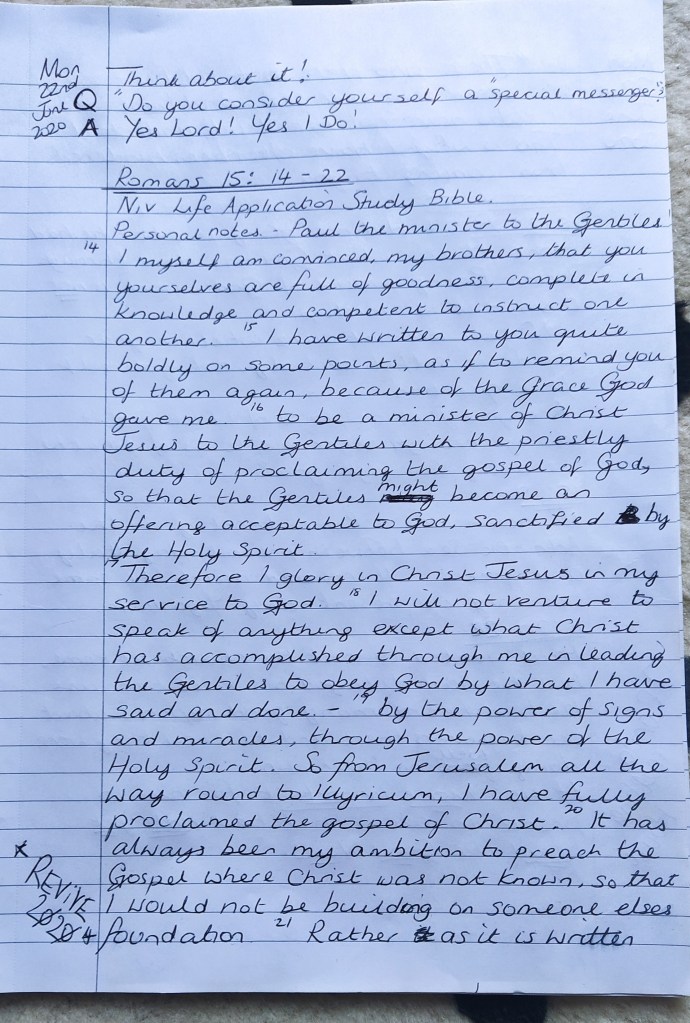 Mon
22nd
June
2020
Think about it!
Q "Do you consider yourself a "special messenger"?
A Yes Lord! Yes I Do!
Romans 15: 14 - 22
NIV Life Application Study Bible.
Personal notes. - Paul the minister to the Gentiles
14 I myself am convinced, my brothers, that you
yourselves are full of goodness, complete in
knowledge and competent to instruct one
another. 15 I have written to you quite
boldly on some points, as if to remind you
of them again, because of the grace God
gave me 16 to be a minister of Christ
Jesus to the Gentiles with the priestly
duty of proclaiming the gospel of God,
so that the Gentiles might become an
offering acceptable to God, sanctified by
the Holy Spirit.
17 Therefore I glory in Christ Jesus in my
service to God. 18 I will not venture to
speak of anything except what Christ
has accomplished through me in leading
the Gentiles to obey God by what I have
said and done. - 19 by the power of signs
and miracles, through the power of the
Holy Spirit. So from Jerusalem all the
way round to Illyricum, I have fully
proclaimed the gospel of Christ. 20 It has
always been my ambition to preach the
Gospel where Christ was not known, so that
I would not be building on someone elses
foundation 21 Rather as it is written
* REVIVE